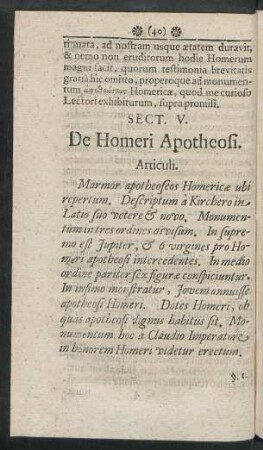 (40)
tinuata, ad nostram usque ætatem duravit,
& nemo non eruditorum hodie Homerum
magni facit, quorum testimonia brevitatis
gratiâ hic omitto, properoque ad monumen-
tum Homericæ, quod me curioso
Lectori exhibiturum, supra promisi.
SECT. V.
De Homeri Apotheosi.
Articuli.
Marmor apotheoseos Homericæ ubi
repertum. Descriptum à Kirchero in
Latio suo vetere & novo. Monumen-
tum in tres ordines divisum. In supre-
mo est Jupiter, & 6 virgines pro Ho-
meri apotheosi intercedentes. In medio
ordine pariter sex figuræ conspiciuntur.
In infimo monstratur, Jovem annuisse
apotheosi Homeri. Dotes Homeri, ob
quas apotheosi dignus habitus sit. Mo-
numentum hoc a Claudio Imperatore
in honorem Homeri videtur erectum.
§. 1.